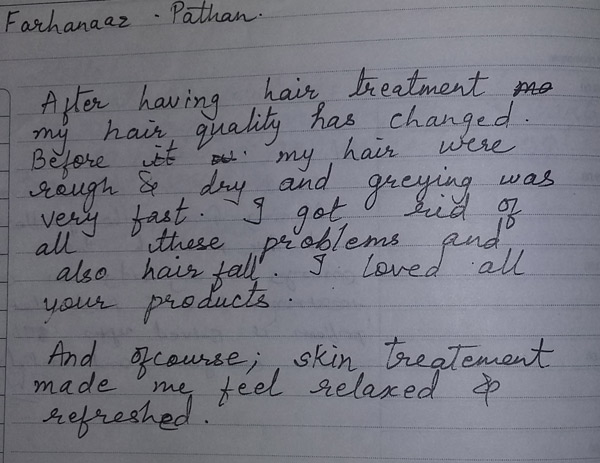 Farhanaaz - Pathan.
After having hair treatment
my hair quality has changed.
Before it my hair were
rough & dry and greying was
very fast. I got rid of
all these problems and
also hair fall. I loved all
your products.
And ofcourse; skin treatement
made me feel relaxed &
refreshed.